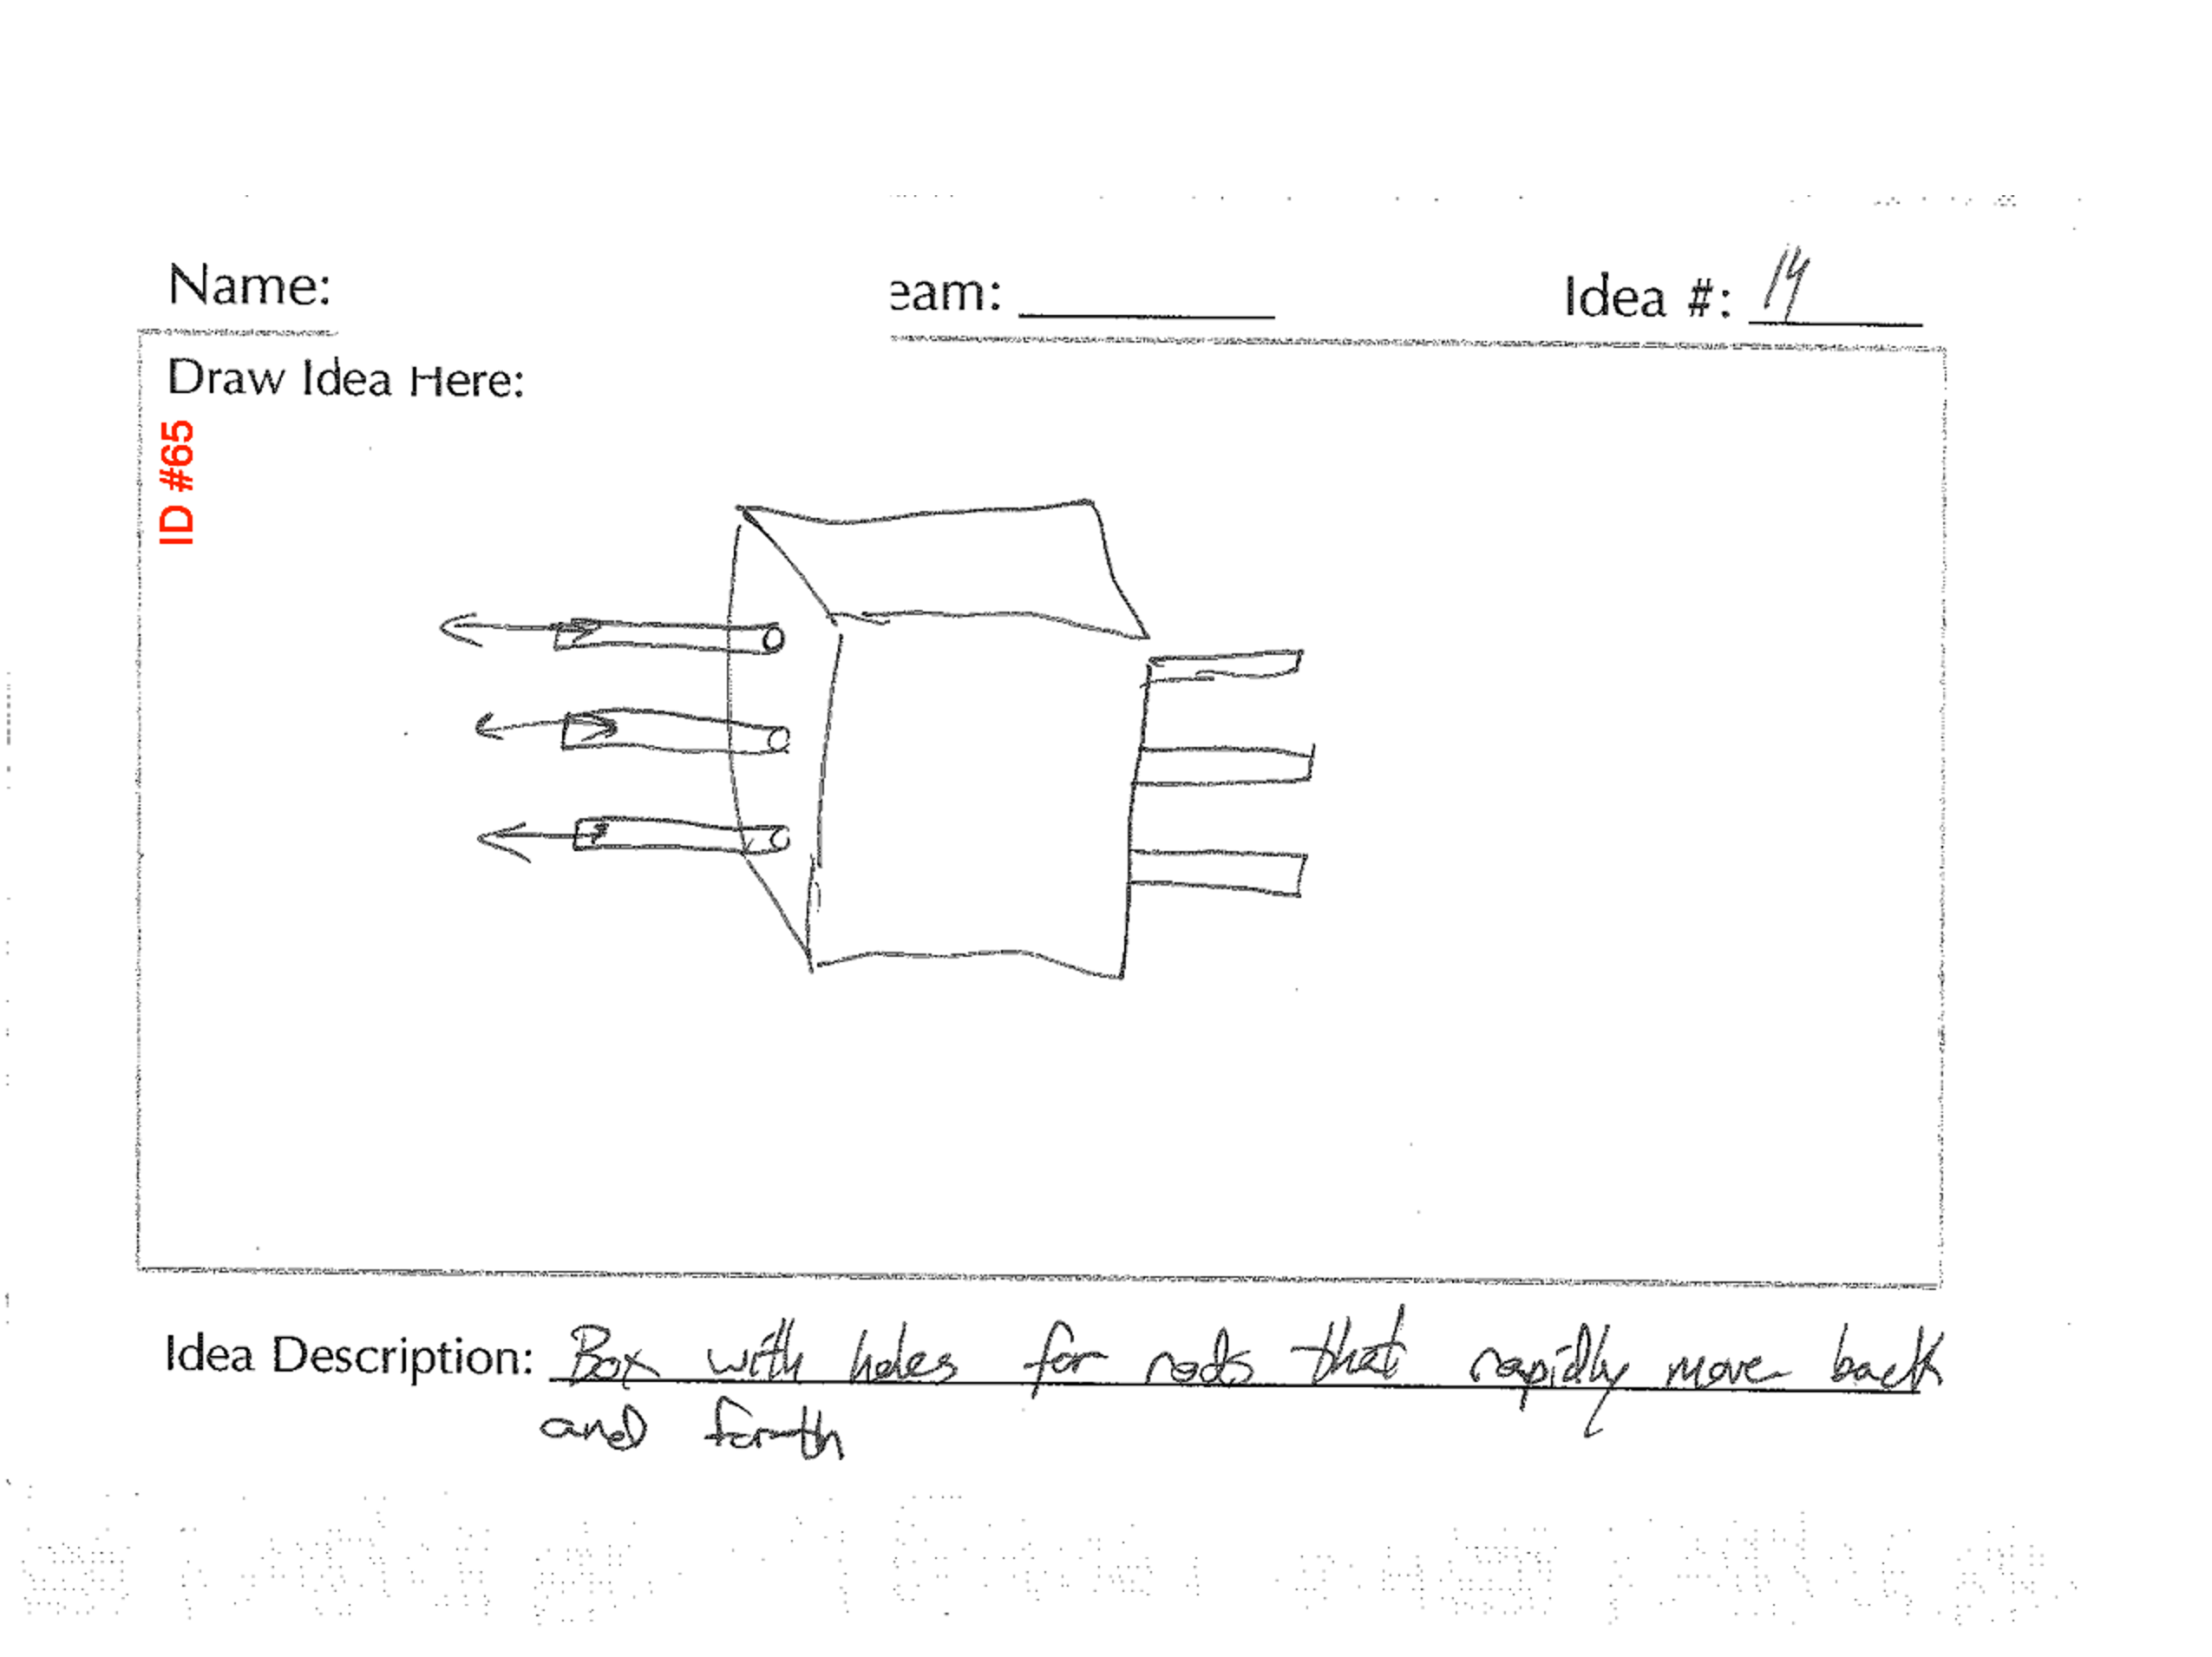 Name:
eam:
Idea #: 14
Draw Idea Here:
ID #65
Idea Description: Box with holes for rods that rapidly move back
and forth